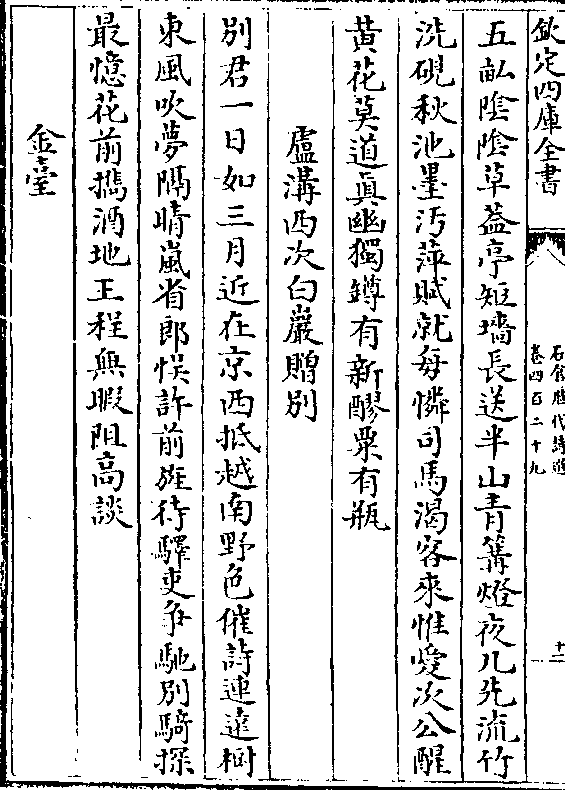 欽定四庫全書
石倉歷代詩選
卷四百二十九
十二
五畝陰陰草葢亭短墻長送半山青篝燈夜几先流竹
洗硯秋池墨汚萍賦就每憐司馬渴客來惟愛次公醒
黄花莫道真幽獨罇有新醪粟有瓶
盧溝西次白巖贈别
别君一日如三月近在京西抵越南野色催詩連逺樹
東風吹夢隔晴嵐省郎悮許前旌待驛吏争馳别騎探
最憶花前擕酒地王程無暇阻高談
金臺